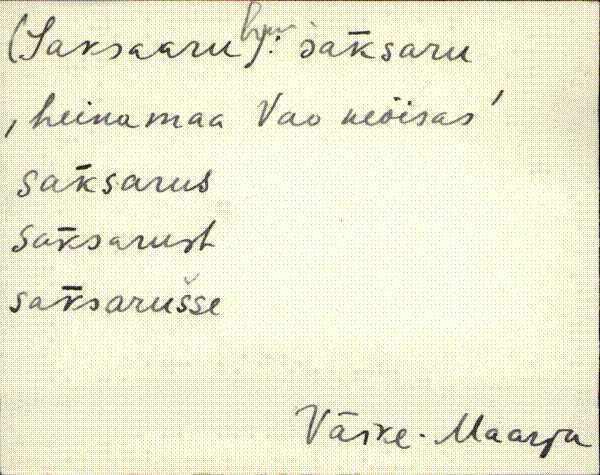 (Saksaaru) hm: sak̄saru
‚heinamaa Vao meõisas'
sak̄sarus
sak̄sarust
sak̄sarušse
Väike-Maarja